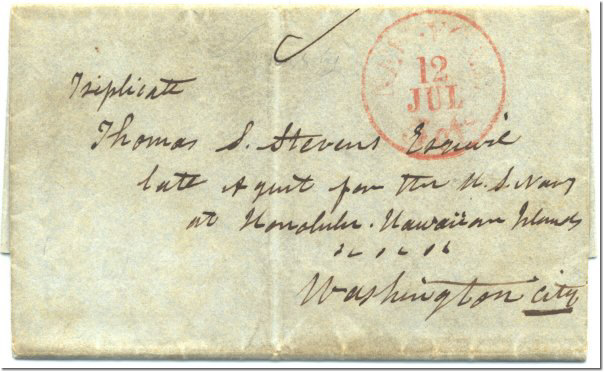 NEW-YORK
12
JUL
Triplicate
Thomas S. Stevens Esquire
late Agent for the U.S. Navy
at Honolulu. Hawaiian Islands
Washington City